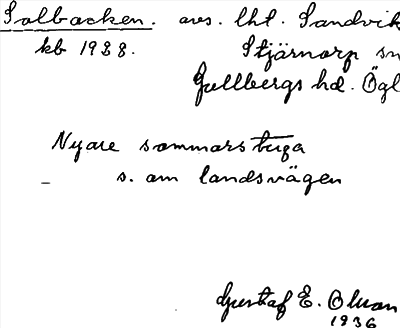 Solbacken. avs. lht. Sandvik
kb 1938. Stjärnorp sn
Gullbergs hd. Ögl
Nyare sommarstuga
s. om landsvägen
Gustaf E. Olson
1936